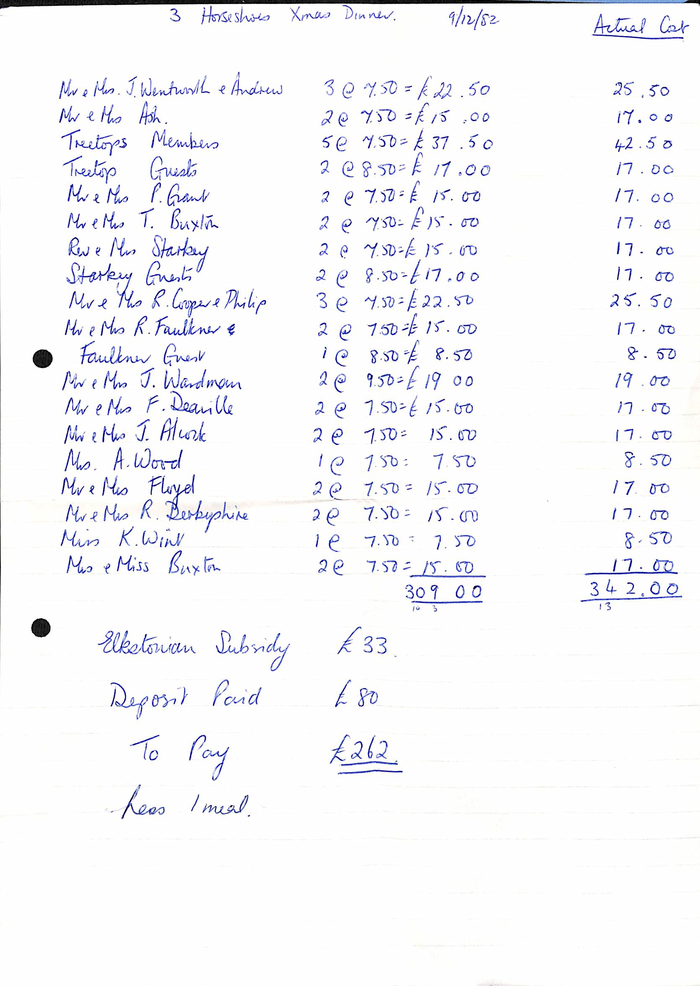 3 Horseshoes Xmas Dinner. 9/12/82 Actual Cost
Mr e Mrs. J. Wentworth e Andrew 3 @ 7.50 = £22.50 25.50
Mr e Mrs Ash. 2 @ 7.50 = £15.00 17.00
Treetops Members 5 @ 7.50 = £37.50 42.50
Treetop Guests 2 @ 8.50 = £17.00 17.00
Mr e Mrs P. Grant 2 @ 7.50 = £15.00 17.00
Mr e Mrs T. Buxton 2 @ 7.50 = £15.00 17.00
Rev e Mrs Starkey 2 @ 7.50 = £15.00 17.00
Starkey Guests 2 @ 8.50 = £17.00 17.00
Mr e Mrs R. Cooper e Philip 3 @ 7.50 = £22.50 25.50
Mr e Mrs R. Faulkner & 2 @ 7.50 = £15.00 17.00
Faulkner Guest 1 @ 8.50 = £8.50 8.50
Mr e Mrs J. Wardman 2 @ 9.50 = £19 00 19.00
Mr e Mrs F. Deaville 2 @ 7.50 = £15.00 17.00
Mr e Mrs J. Alcock 2 @ 7.50 = 15.00 17.00
Mrs. A. Wood 1 @ 7.50 = 7.50 8.50
Mr e Mrs Floyd 2 @ 7.50 = 15.00 17.00
Mr e Mrs R. Derbyshire 2 @ 7.50 = 15.00 17.00
Miss K. Wint 1 @ 7.50 = 7.50 8.50
Mrs e Miss Buxton 2 @ 7.50 = 15.00 17.00
309 00 342.00
10 3 13
Elkstonian Subsidy £33.
Deposit Paid £80
To Pay £262.
Less 1 meal.